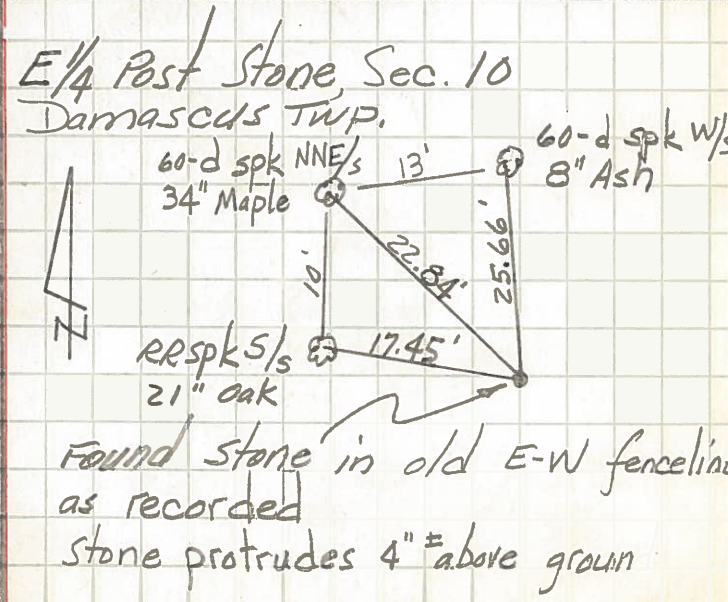 E1/4 Post Stone, Sec. 10
Damascus Twp.
60-d spk NNE/s
34" Maple
13'
60-d spk W/s
8" Ash
10'
22.84'
25.66'
N
RRspk S/s
21" Oak
17.45'
Found Stone in old E-W fenceline
as recorded
Stone protrudes 4" ± above groun